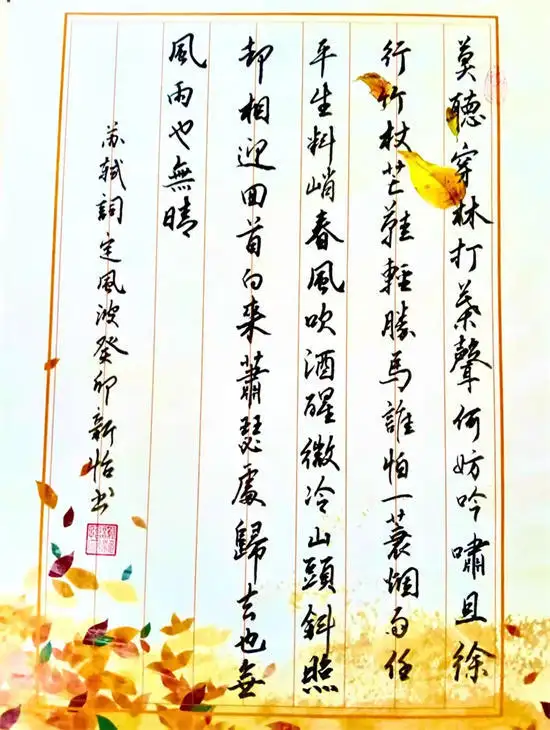 莫聽穿林打葉聲何妨吟嘯且徐
行竹杖芒鞋輕勝馬誰怕一蓑烟雨任
平生料峭春風吹酒醒微冷山頭斜照
却相迎回首向来蕭瑟處歸去也無
風雨也無晴
苏軾詞定風波癸卯新怡书